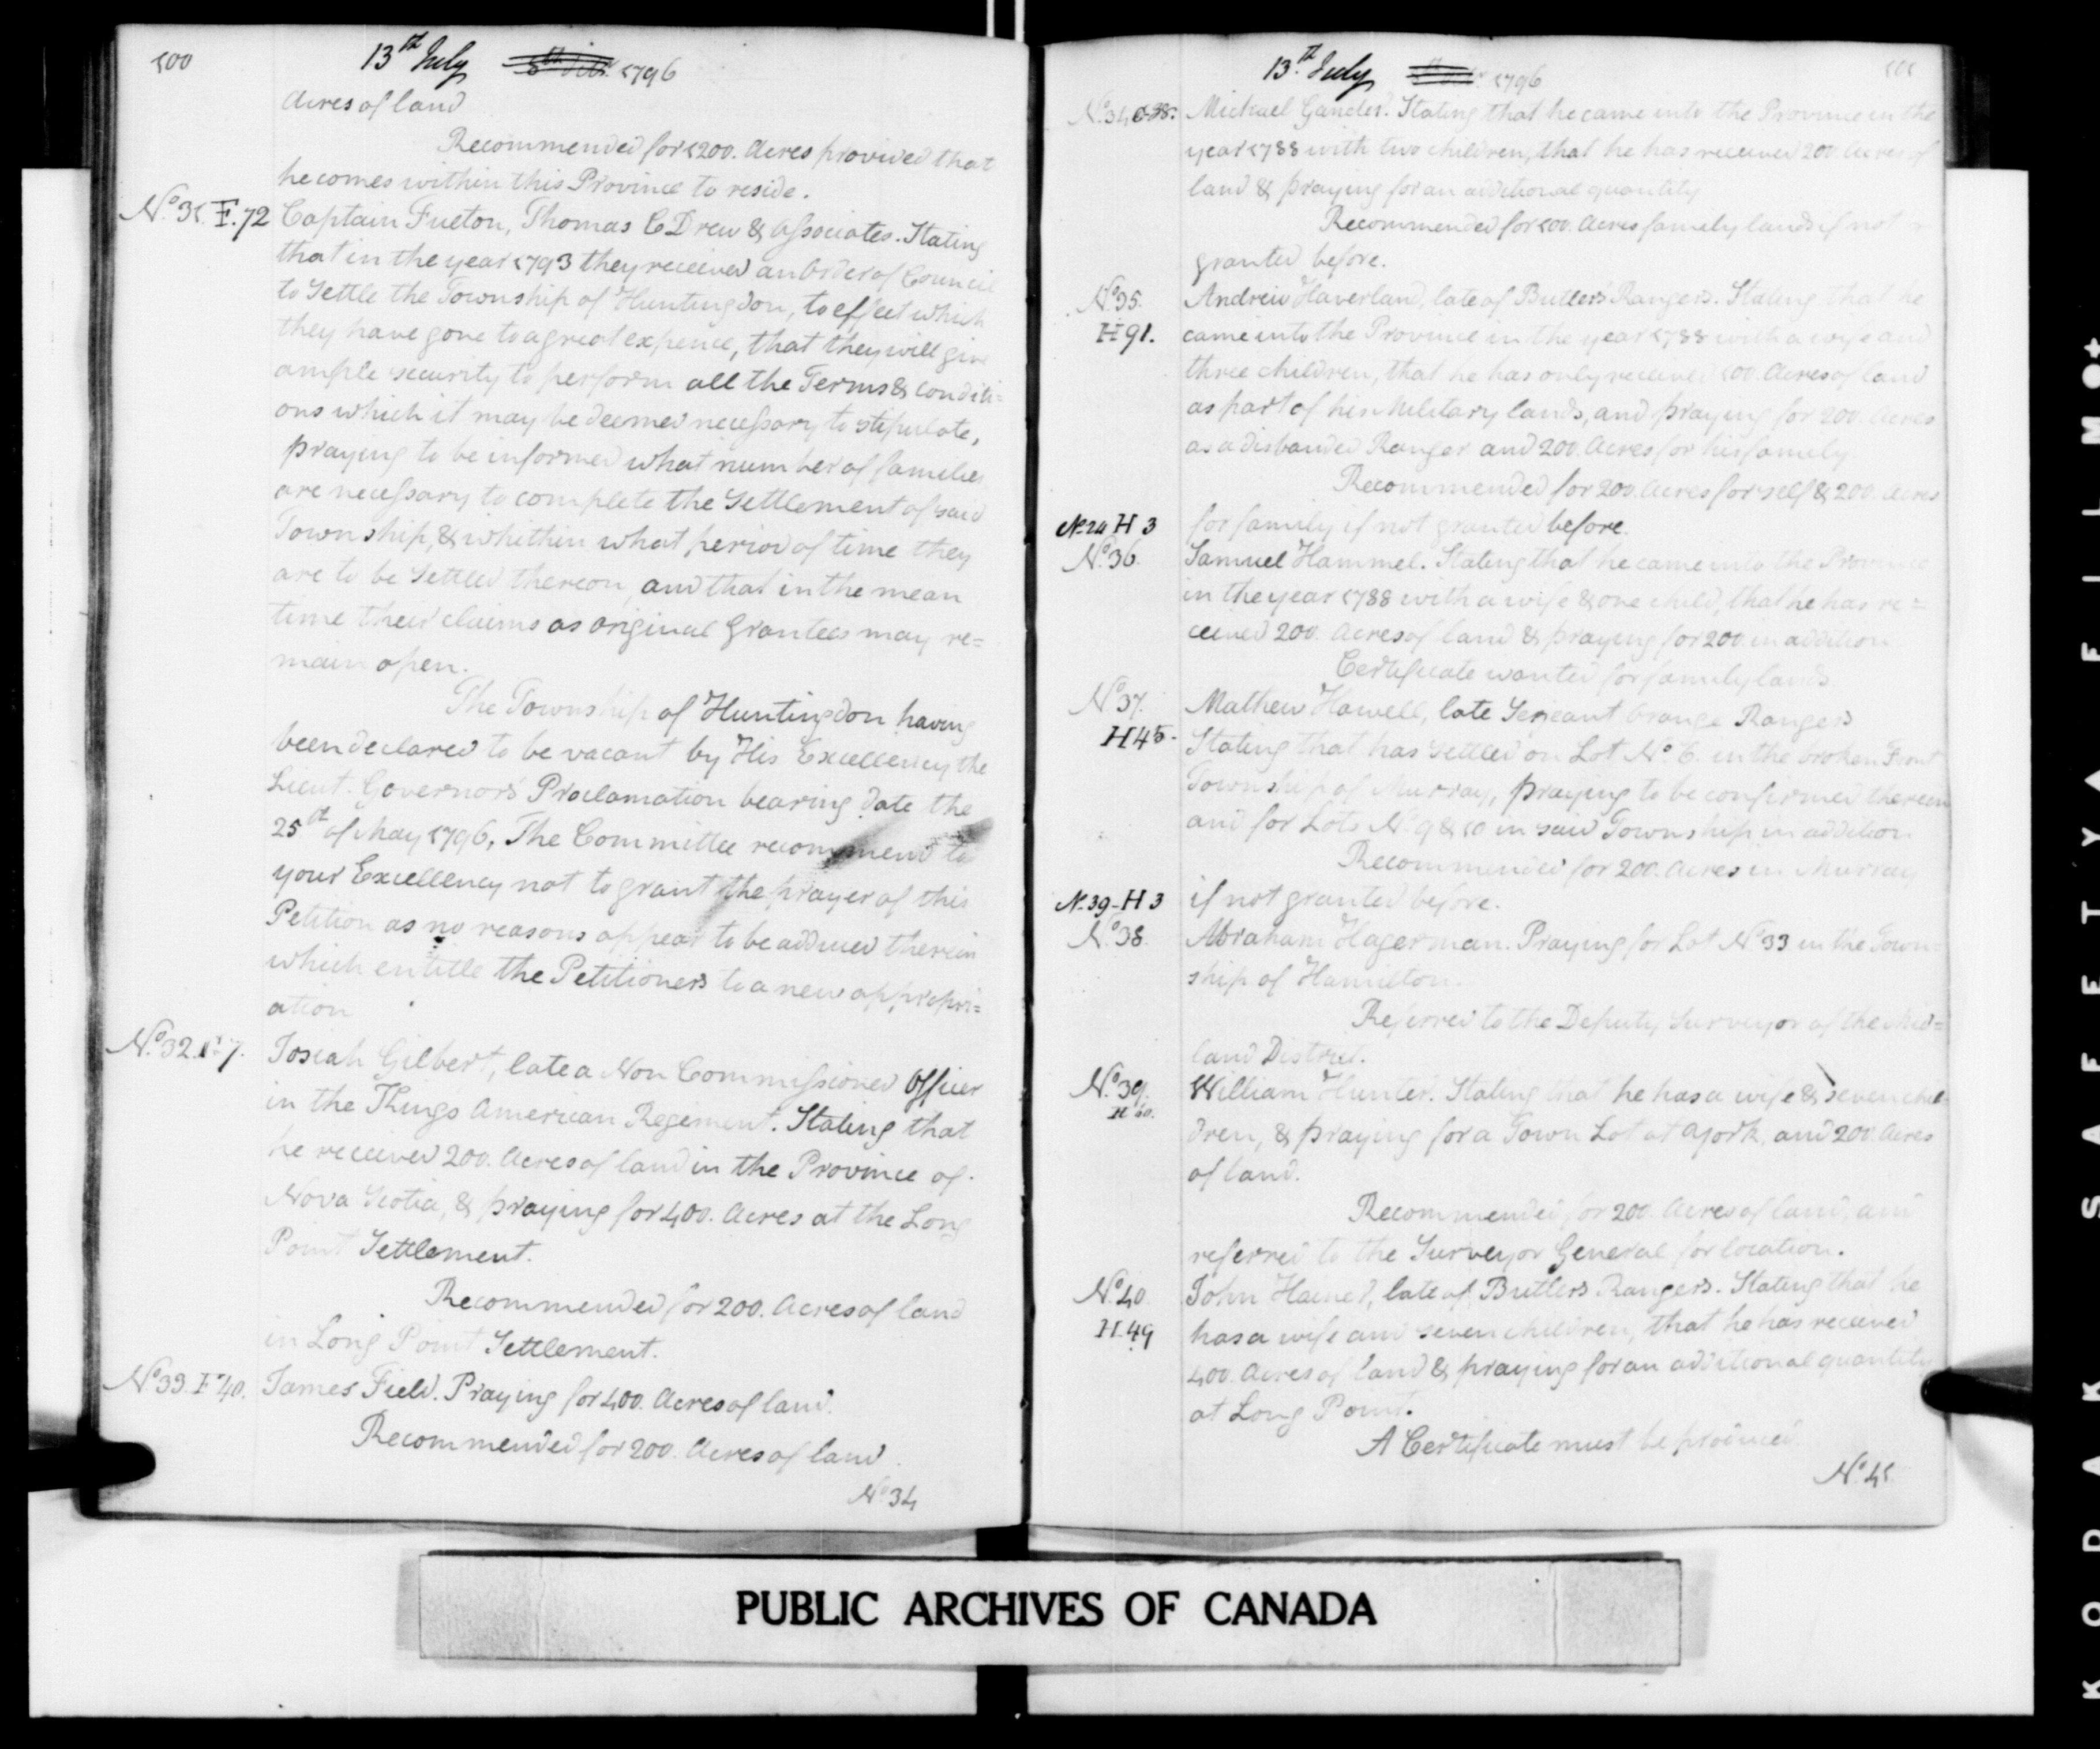 100
13th July 1796
Acres of land
Recommended for 1200. Acres provided that
he comes within this Province to reside.
No. 31. F.72 Captain Fueton, Thomas C Drew & Associates. Stating
that in the year 1793 they received an Order of Council
to Settle the Township of Huntingdon, to effect which
they have gone to a great expence, that they will give
ample security to perform all the Terms & conditi=
ons which it may be deemed necessary to stipulate,
praying to be informed what number of families
are necessary to complete the Settlement of said
Township, & whithin what period of time they
are to be Settled thereon, and that in the mean
time their claims as original Grantees may re=
main open.
The Township of Huntingdon having
been declared to be vacant by His Excellency the
Lieut. Governor's Proclamation bearing date the
25th of May 1796, The Committee recommend to
your Excellency not to grant the prayer of this
Petition as no reasons appear to be adduced therein
which entitle the Petitioners to a new appropri=
ation
No. 32. 7. Josiah Gilbert, late a Non Commissioned Officer
in the Kings American Regiment. Stating that
he received 200. Acres of land in the Province of
Nova Scotia, & praying for 400. Acres at the Long
Point Settlement.
Recommended for 200. Acres of land
in Long Point Settlement.
No. 33. F 40. James Field. Praying for 400. Acres of land.
Recommended for 200. Acres of land
No. 34
13th July 1796
101
No. 34 G 38. Michael Gander. Stating that he came into the Province in the
year 1788 with two children, that he has received 200 Acres of
land & praying for an additional quantity
Recommended for 100. Acres family lands if not
granted before.
No. 35. Andrew Haverland, late of Butlers Rangers. Stating that he
H 91. came into the Province in the year 1788 with a wife and
three children, that he has only received 100. Acres of land
as part of his Military lands, and praying for 200. Acres
as a disbanded Ranger and 200. Acres for his family.
Recommended for 200. Acres for self & 200. Acres
No. 24 H 3 for family if not granted before.
No. 36. Samuel Hammel. Stating that he came into the Province
in the year 1788 with a wife & one child, that he has re=
ceived 200. Acres of land & praying for 200 in addition
Certificate wanted for family lands.
No. 37. Mathew Howell, late Serjeant Orange Rangers
H 45. Stating that has settled on Lot No. 6. in the broken Front
Township of Murray, praying to be confirmed therein
and for Lots No. 9 & 10 in said Township in addition
Recommended for 200. Acres in Murray
No. 39 - H 3 if not granted before.
No. 38. Abraham Hagerman. Praying for Lot No. 33 in the Town=
ship of Hamilton.
Referred to the Deputy Surveyor of the Mid=
land District.
No. 39. William Hunter. Stating that he has a wife & seven chil=
dren, & praying for a Town Lot at York, and 200. Acres
of land.
Recommended for 200. Acres of land, and
referred to the Surveyor General for location.
No. 40. John Hainer, late of Butlers Rangers. Stating that he
H-49 has a wife and seven children, that he has received
400. Acres of land & praying for an additional quantity
at Long Point.
A Certificate must be produced.
No. 41
PUBLIC ARCHIVES OF CANADA
KODAK SAFETY FILM